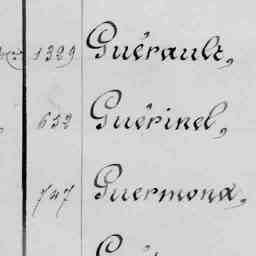 1329 Guérault,
632 Guérinel,
747 Guermona,